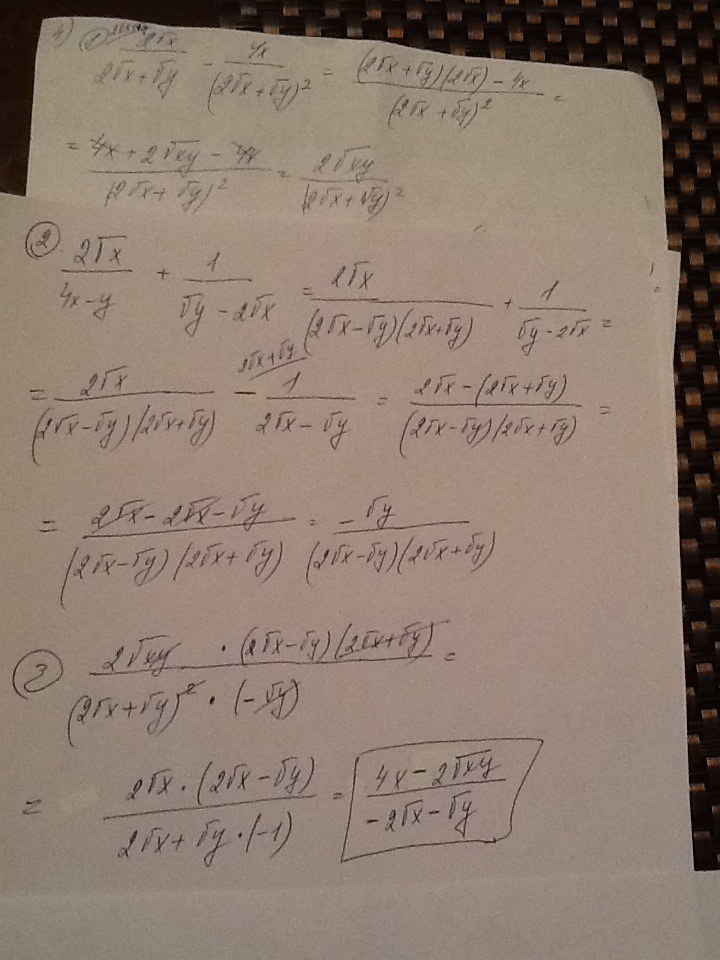 4) ① 2√x / (2√x+√y) - 4x / (2√x+√y)² = ((2√x+√y)(2√x) - 4x) / (2√x+√y)² =
= (4x + 2√xy - 4x) / (2√x+√y)² = 2√xy / (2√x+√y)²
② 2√x / (4x-y) + 1 / (√y-2√x) = 2√x / ((2√x-√y)(2√x+√y)) + 1 / (√y-2√x) =
= 2√x / ((2√x-√y)(2√x+√y)) - 2√x+√y / 1 / (2√x-√y) = (2√x-(2√x+√y)) / ((2√x-√y)(2√x+√y)) =
= (2√x-2√x-√y) / ((2√x-√y)(2√x+√y)) = -√y / ((2√x-√y)(2√x+√y))
③ 2√xy · (2√x-√y)(2√x+√y) / ((2√x+√y)² · (-√y)) =
= 2√x · (2√x-√y) / (2√x+√y · (-1)) = (4x-2√xy) / (-2√x-√y)